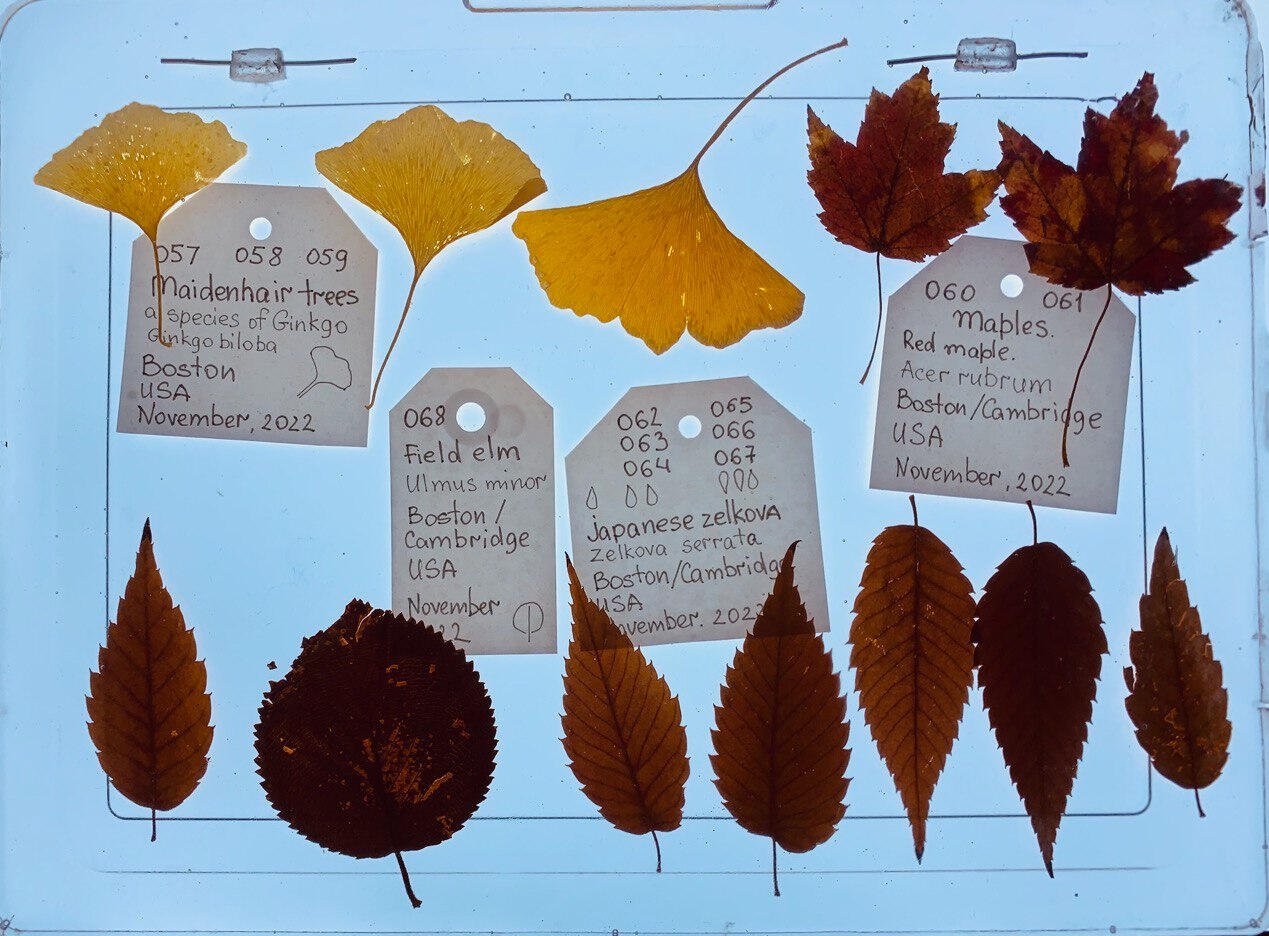 057 058 059
Maidenhair trees
a species of Ginkgo
Ginkgo biloba
Boston
USA
November, 2022
068
Field elm
Ulmus minor
Boston /
Cambridge
USA
November
062 065
063 066
064 067
japanese zelkova
zelkova serrata
Boston/Cambridge
USA
060 061
Maples.
Red maple.
Acer rubrum
Boston/Cambridge
USA
November, 2022